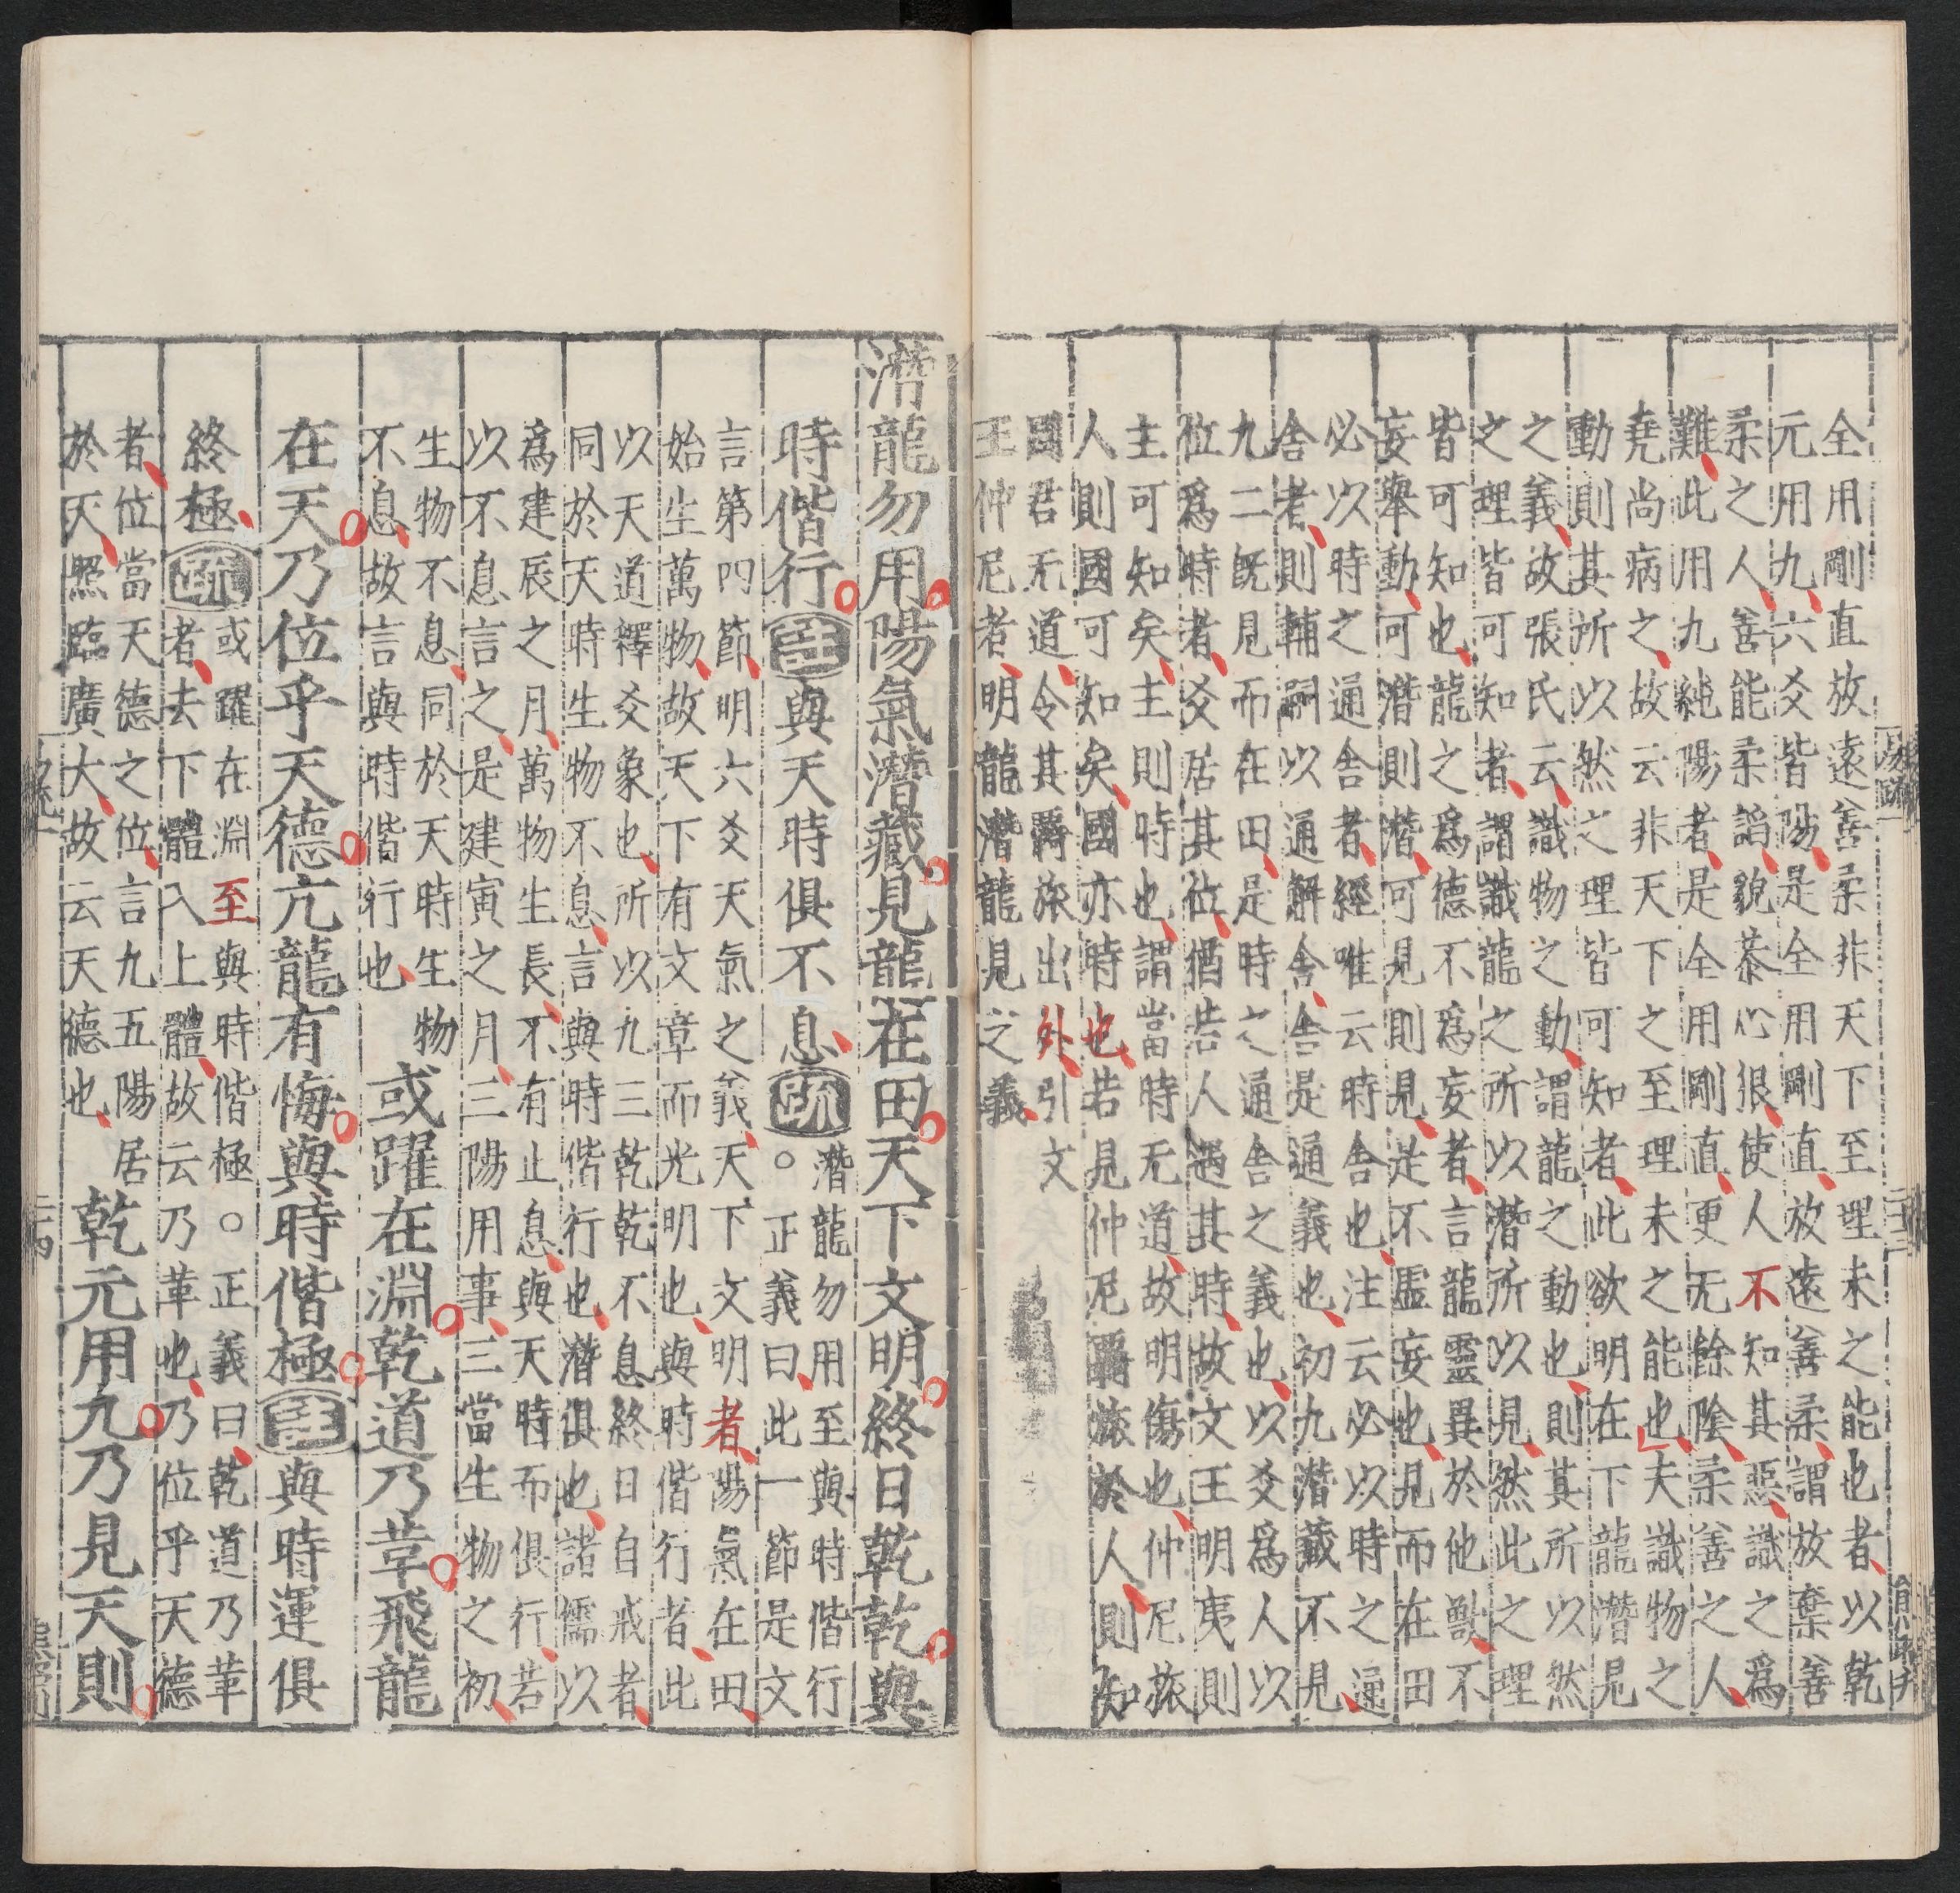 全用剛直放遠善柔非天下至理未之能也者以乾
元用九六爻皆陽是全用剛直放遠善柔謂放棄善
柔之人善能柔諂貌恭心狠使人不知其惡識之爲
難此用九純陽者是全用剛直更无餘陰柔善之人
堯尚病之故云非天下之至理未之能也夫識物之
動則其所以然之理皆可知者此欲明在下龍潛見
之義故張氏云識物之動謂龍之動也則其所以然
之理皆可知者謂識龍之所以潛所以見然此之理
皆可知也龍之爲德不爲妄者言龍靈異於他獸不
妄舉動可潛則潛可見則見是不虛妄也見而在田
必以時之通舍者經唯云時舍也注云必以時之通
舍者則輔嗣以通解舍舍是通義也初九潛藏不見
九二旣見而在田是時之通舍之義也以爻爲人以
位爲時者爻居其位猶若人遇其時故文王明夷則
主可知矣主則時也謂當時无道故明傷也仲尼旅
人則國可知矣國亦時也若見仲尼羇旅於人則知
國君无道令其羇旅出外引文
王仲尼者明龍潛龍見之義
潛龍勿用陽氣潛藏見龍在田天下文明終日乾乾與
時偕行註與天時俱不息疏潛龍勿用至與時偕行
。正義曰此一節是文
言第四節明六爻天氣之義天下文明者陽氣在田
始生萬物故天下有文章而光明也與時偕行者此
以天道釋爻象也所以九三乾乾不息終日自戒者
同於天時生物不息言與時偕行也潛俱也諸儒以
爲建辰之月萬物生長不有止息與天時而俱行若
以不息言之是建寅之月三陽用事三當生物之初
生物不息同於天時生物
不息故言與時偕行也或躍在淵乾道乃革飛龍
在天乃位乎天德亢龍有悔與時偕極註與時運俱
終極疏或躍在淵至與時偕極。正義曰乾道乃革
者去下體入上體故云乃革也乃位乎天德
者位當天德之位言九五陽居
於天照臨廣大故云天德也乾元用九乃見天則